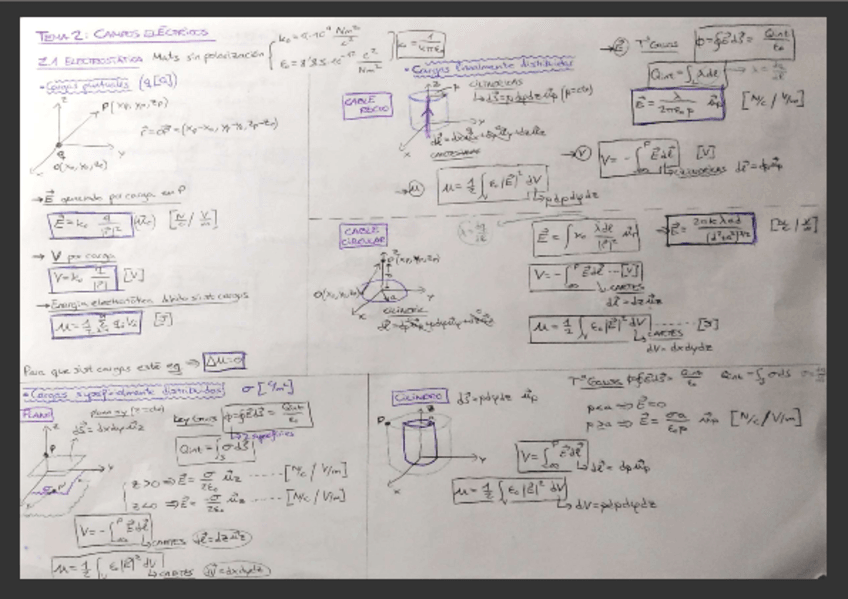 TEMA 2: CAMPOS ELÉCTRICOS
2.1 ELECTROSTÁTICA Mats sin polarización { k₀ = 9·10⁹ Nm²/C²
ε₀ = 8'85·10⁻¹² C²/Nm² ] k₀ = 1/4πε₀
• Cargas puntuales (q [C])
z
P(xp, yp, zp)
r⃗ = OP⃗ = (xp-x₀, yp-y₀, zp-z₀)
q
y
O(x₀, y₀, z₀)
→ E⃗ generado por carga en P
E⃗ = k₀ q/|r⃗|² (u⃗r) [N/C / V/m]
→ V por carga
V = k₀ q/|r⃗| [V]
→ Energía electrostática debido sist cargas
μ = 1/2 Σ qᵢVᵢ [J]
Para que sist cargas esté eq → Δμ=0
• Cargas linealmente distribuidas
CABLE RECTO
CILÍNDRICAS
z
y
x
CARTESIANAS
→ E⃗ Tª Gauss φ = ∮E⃗dS⃗ = Qint/ε₀
Qint = ∫ λdl
E⃗ = λ/2πε₀ρ u⃗ρ [N/C / V/m]
→ V V = -∫ E⃗dl⃗ [V]
CILÍNDRICAS dl⃗ = dρu⃗ρ
→ μ μ = 1/2 ∫ ε₀|E⃗|² dV
ρdρdφdz
CABLE CIRCULAR
P(xp, yp, zp)
O(x₀, y₀, z₀)
y
x
CILÍNDRIC
E⃗ = ∫ k₀ λdl/|r⃗|² u⃗ρ
[N/C / V/m]
V = -∫ E⃗dl⃗ ... [V]
CARTES
dl⃗ = dzu⃗z
μ = 1/2 ∫ ε₀|E⃗|² dV ...... [J]
CARTES
dV = dxdydz
• Cargas superficialmente distribuidas σ [C/m²]
PLANO
plano xy (z=cte)
dS⃗ = dxdyu⃗z
Ley Gauss φ = ∮E⃗dS⃗ = Qint/ε₀
2 superficies
Qint = ∫ σdS
z>0 ⇒ E⃗ = σ/2ε₀ u⃗z ...... [N/C / V/m]
z<0 ⇒ E⃗ = -σ/2ε₀ u⃗z ...... [N/C / V/m]
V = -∫ E⃗dl⃗
CARTES dl⃗ = dzu⃗z
μ = 1/2 ∫ ε₀|E⃗|² dV
CARTES dV = dxdydz
CILINDRO dS⃗ = ρdφdz u⃗ρ
Tª Gauss φ = ∮E⃗dS⃗ = Qint/ε₀ Qint = ∫ σdS
ρ<a ⇒ E⃗ = 0
ρ≥a ⇒ E⃗ = σa/ε₀ρ u⃗ρ [N/C / V/m]
P
z
y
x
V = ∫ E⃗dl⃗
dl⃗ = dρu⃗ρ
μ = 1/2 ∫ ε₀|E⃗|² dV
dV = ρdρdφdz